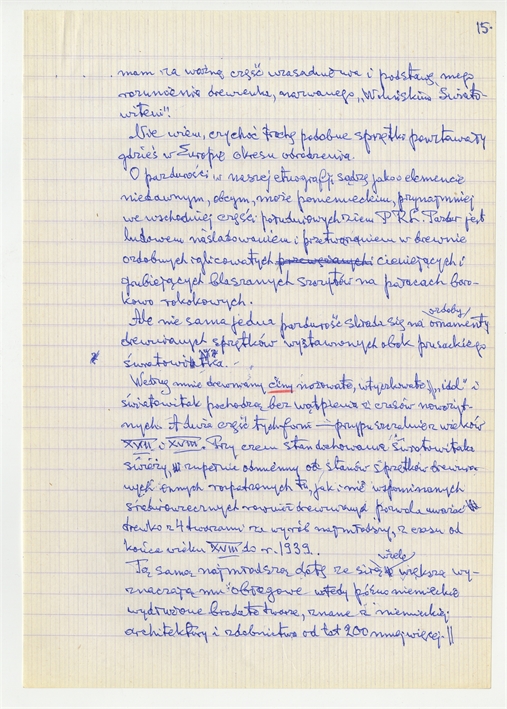 15.
mam za ważną część uzasadnictwa i podstawę mego
rozumienia drewienka, nazwanego „Wolińskim Świato-
witem".
Nie wiem, czy choć trochę podobne sprzętki powstawały
gdzieś w Europie okresu odrodzenia.
O pazdurości w naszej etnografji, sądzę jako o elemencie
niedawnym, obcym, może poniemieckim, przynajmniej
we wschodniej części południowych ziem PRL. Pazdur jest
ludowem naśladowaniem i przetworzeniem w drewnie
ozdobnych iglicowatych cieniejących i
grubiejących blaszanych szczytów na pałacach baro-
kowo rokokowych.
Ale nie sama jedna pazdurość składa się na ozdoby ornamenty
drewnianych sprzętków wystawionych obok prusackiego
światowitka.
Według mnie drewniany nożowato, „idol" i
światowitak pochodzą bez wątpienia z czasów nowożyt-
nych. A dwie części tych form — przypuszczalnie z wieków
XVII i XVIII. Przy czem stan zachowania światowitaka
świeży, zupełnie odmienny od stanów sprzętków drewnia-
nych innych rozpatrzonych tu, jak i nie wspominanych
średniowiecznych również drewnianych pozwala uważać
drewko z 4 twarzami za wyrób najmłodszy, z czasu od
końca wieku XVIII do r. 1939.
Tę samą najmłodszą datę ze wielo większą wy-
znaczają mu obiegowe wtedy północno niemieckie
wydłużone brodate twarze, znane z niemieckiej
architektury i zdobnictwa od lat 200 mniej więcej.